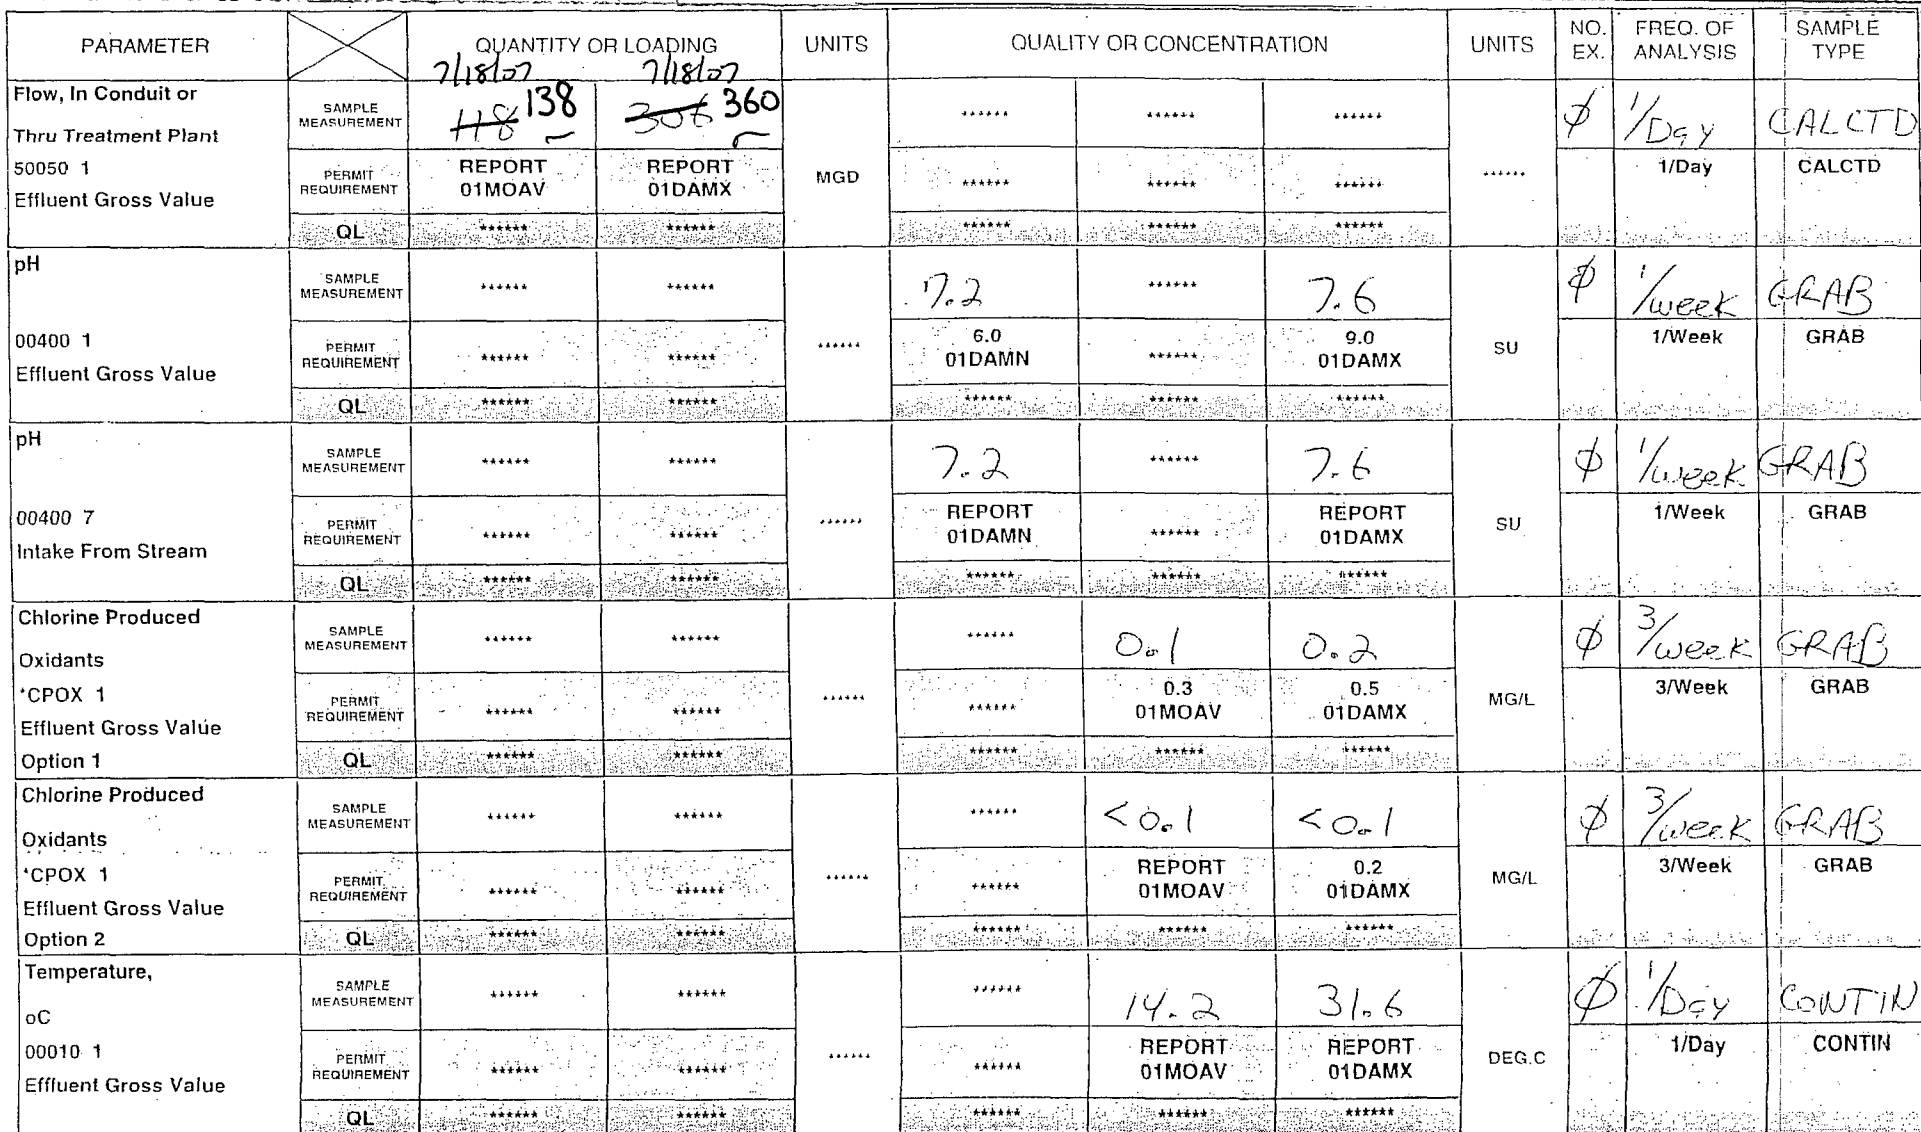 PARAMETER QUANTITY OR LOADING UNITS QUALITY OR CONCENTRATION UNITS NO. EX. FREQ. OF ANALYSIS SAMPLE TYPE
7/18/07 7/18/07
Flow, In Conduit or
Thru Treatment Plant
50050 1
Effluent Gross Value
SAMPLE MEASUREMENT 118 138 306 360 ****** ****** ****** ϕ 1/Day CALCTD
PERMIT REQUIREMENT REPORT 01MOAV REPORT 01DAMX MGD ****** ****** ****** ****** 1/Day CALCTD
QL ****** ****** ****** ****** ******
pH
00400 1
Effluent Gross Value
SAMPLE MEASUREMENT ****** ****** 7.2 ****** 7.6 ϕ 1/week GRAB
PERMIT REQUIREMENT ****** ****** ****** 6.0 01DAMN ****** 9.0 01DAMX SU 1/Week GRAB
QL ****** ****** ****** ****** ******
pH
00400 7
Intake From Stream
SAMPLE MEASUREMENT ****** ****** 7.2 ****** 7.6 ϕ 1/week GRAB
PERMIT REQUIREMENT ****** ****** ****** REPORT 01DAMN ****** REPORT 01DAMX SU 1/Week GRAB
QL ****** ****** ****** ****** ******
Chlorine Produced
Oxidants
*CPOX 1
Effluent Gross Value
Option 1
SAMPLE MEASUREMENT ****** ****** ****** 0.1 0.2 ϕ 3/week GRAB
PERMIT REQUIREMENT ****** ****** ****** ****** 0.3 01MOAV 0.5 01DAMX MG/L 3/Week GRAB
QL ****** ****** ****** ****** ******
Chlorine Produced
Oxidants
*CPOX 1
Effluent Gross Value
Option 2
SAMPLE MEASUREMENT ****** ****** ****** <0.1 <0.1 ϕ 3/week GRAB
PERMIT REQUIREMENT ****** ****** ****** ****** REPORT 01MOAV 0.2 01DAMX MG/L 3/Week GRAB
QL ****** ****** ****** ****** ******
Temperature,
oC
00010 1
Effluent Gross Value
SAMPLE MEASUREMENT ****** ****** ****** 14.2 31.6 ϕ 1/Day CONTIN
PERMIT REQUIREMENT ****** ****** ****** ****** REPORT 01MOAV REPORT 01DAMX DEG.C 1/Day CONTIN
QL ****** ****** ****** ****** ******